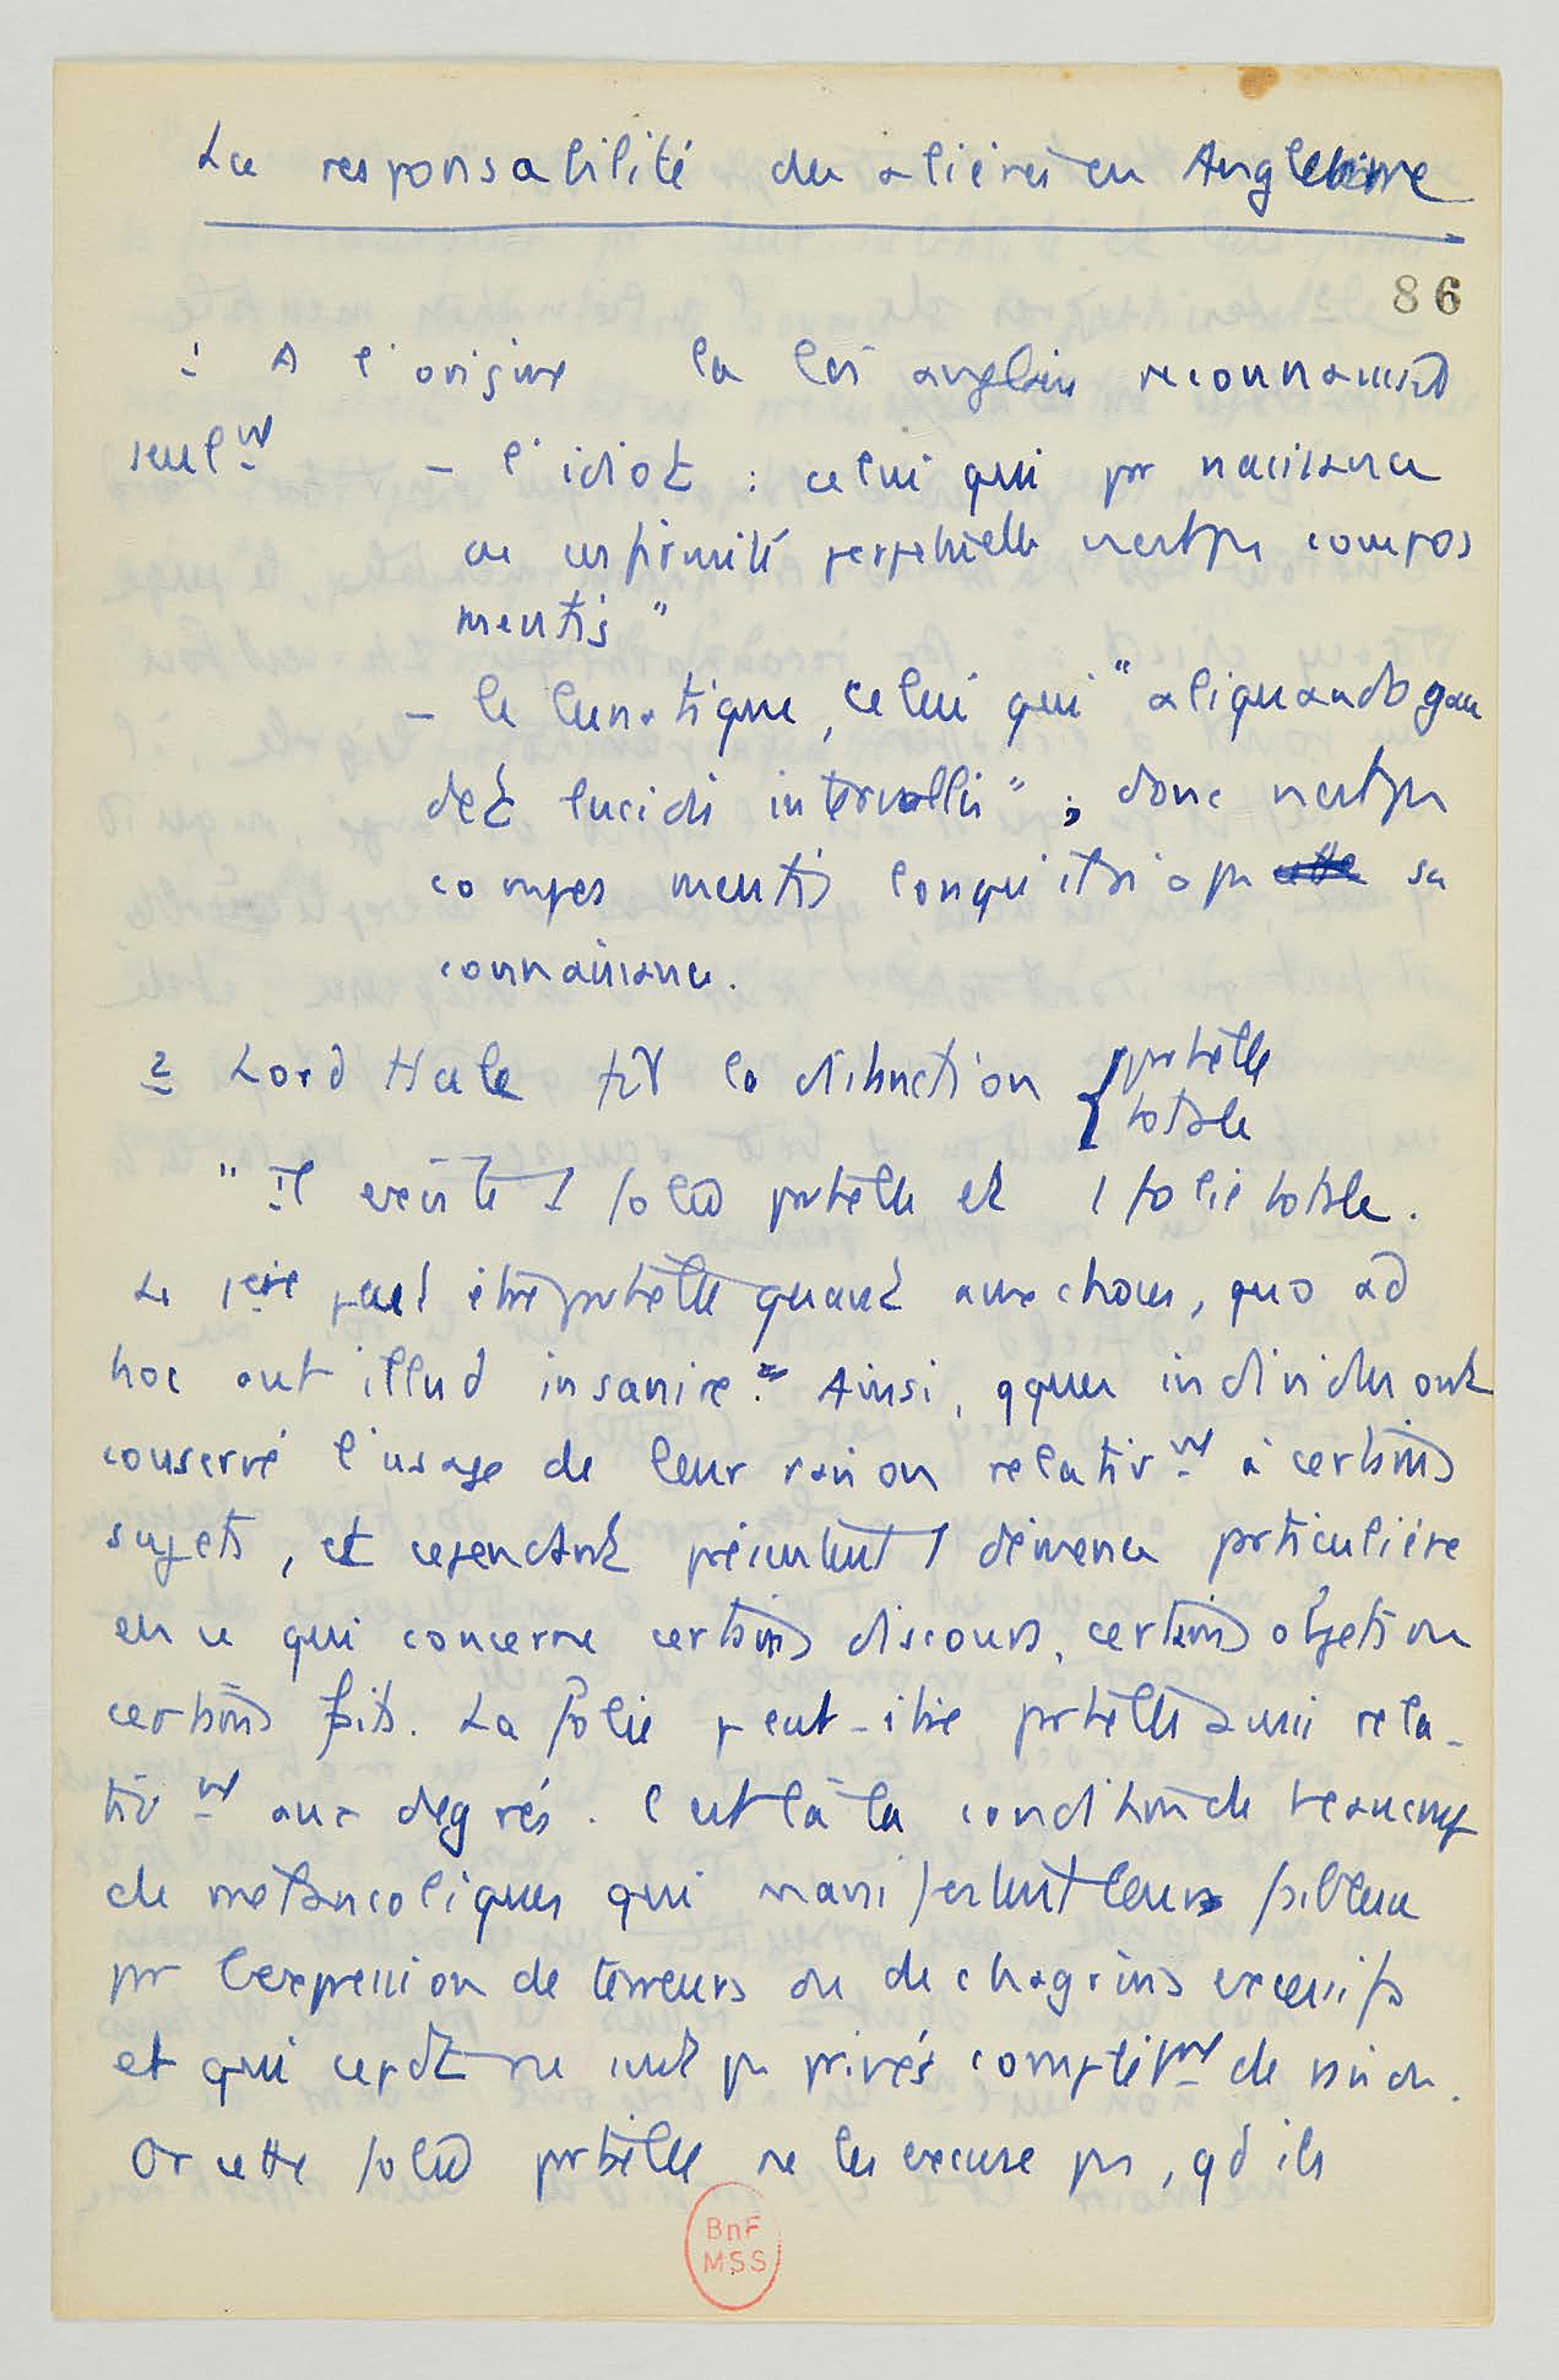 La responsabilité des aliénés en Angleterre
86
1 A l'origine la loi anglaise reconnaissait
seulmt – l'idiot : celui qui par naissance
ou infirmité perpétuelle n'est pas compos
mentis"
– le lunatique, celui qui "aliquando gau
det lucidis intervallis" ; donc n'est pas
compos mentis lorsqu'il a pas sa
connaissance.
2 Lord Hale fit la distinction { partielle
totale
" Il existe 1 folie partielle et 1 folie totale.
La 1ère peut être partielle quant aux choses, quo ad
hoc aut illud insanire. Ainsi, qques individus ont
conservé l'usage de leur raison relativmt à certains
sujets, et cependant présentent 1 démence particulière
en ce qui concerne certains discours, certains objets ou
certains faits. La folie peut-être partielle aussi rela-
tivmt aux degrés. C'est là la condition de beaucoup
de mélancoliques qui manifestent leur faiblesse
par l'expression de terreurs ou de chagrins excessifs
et qui cepdt ne sont pas privés complètmt de raison.
Or cette folie partielle ne les excuse pas, qd ils
BnF
MSS